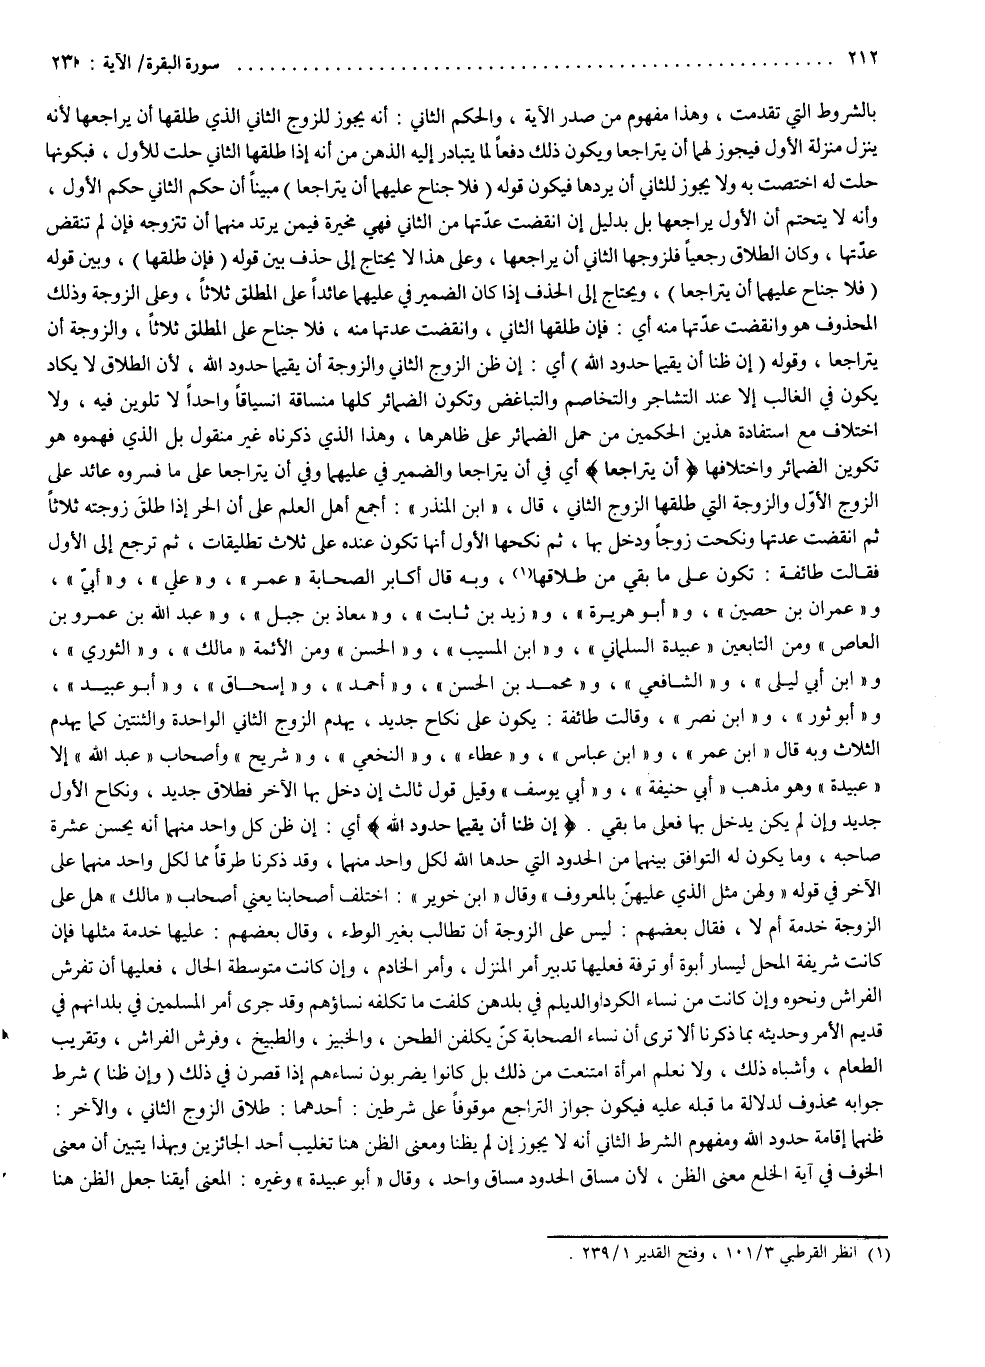 ٢١٢ ........................................ سورة البقرة/ الآية : ٢٣٠
بالشروط التي تقدمت ، وهذا مفهوم من صدر الآية ، والحكم الثاني : أنه يجوز للزوج الثاني الذي طلقها أن يراجعها لأنه
ينزل منزلة الأول فيجوز لهما أن يتراجعا ويكون ذلك دفعاً لما يتبادر إليه الذهن من أنه إذا طلقها الثاني حلت للأول ، فبكونها
حلت له اختصت به ولا يجوز للثاني أن يردها فيكون قوله ( فلا جناح عليهما أن يتراجعا ) مبيناً أن حكم الثاني حكم الأول ،
وأنه لا يتحتم أن الأول يراجعها بل بدليل إن انقضت عدّتها من الثاني فهي مخيرة فيمن يرتد منهما أن تتزوجه فإن لم تنقض
عدّتها ، وكان الطلاق رجعياً فلزوجها الثاني أن يراجعها ، وعلى هذا لا يحتاج إلى حذف بين قوله ( فإن طلقها ) ، وبين قوله
( فلا جناح عليهما أن يتراجعا ) ، ويحتاج إلى الحذف إذا كان الضمير في عليهما عائداً على المطلق ثلاثاً ، وعلى الزوجة وذلك
المحذوف هو وانقضت عدّتها منه أي : فإن طلقها الثاني ، وانقضت عدتها منه ، فلا جناح على المطلق ثلاثاً ، والزوجة أن
يتراجعا ، وقوله ( إن ظنا أن يقيما حدود الله ) أي : إن ظن الزوج الثاني والزوجة أن يقيما حدود الله ، لأن الطلاق لا يكاد
يكون في الغالب إلا عند التشاجر والتخاصم والتباغض وتكون الضمائر كلها منساقة انسياقاً واحداً لا تلوين فيه ، ولا
اختلاف مع استفادة هذين الحكمين من حمل الضمائر على ظاهرها ، وهذا الذي ذكرناه غير منقول بل الذي فهموه هو
تكوين الضمائر واختلافها ﴿ أن يتراجعا ﴾ أي في أن يتراجعا والضمير في عليهما وفي أن يتراجعا على ما فسروه عائد على
الزوج الأوّل والزوجة التي طلقها الزوج الثاني ، قال ، « ابن المنذر » : أجمع أهل العلم على أن الحر إذا طلق زوجته ثلاثاً
ثم انقضت عدتها ونكحت زوجاً ودخل بها ، ثم نكحها الأول أنها تكون عنده على ثلاث تطليقات ، ثم ترجع إلى الأول
فقالت طائفة : تكون على ما بقي من طلاقها(١) ، وبه قال أكابر الصحابة « عمر » ، و« علي » ، و« أبيّ » ،
و« عمران بن حصين » ، و« أبو هريرة » ، و« زيد بن ثابت » ، و« معاذ بن جبل » ، و« عبد الله بن عمرو بن
العاص » ومن التابعين « عبيدة السلماني » ، و« ابن المسيب » ، و« الحسن » ومن الأئمة « مالك » ، و« الثوري » ،
و« ابن أبي ليلى » ، و« الشافعي » ، و« محمد بن الحسن » ، و« أحمد » ، و« إسحاق » ، و« أبو عبيد » ،
و« أبو ثور » ، و« ابن نصر » ، وقالت طائفة : يكون على نكاح جديد ، يهدم الزوج الثاني الواحدة والثنتين كما يهدم
الثلاث وبه قال « ابن عمر » ، و« ابن عباس » ، و« عطاء » ، و« النخعي » ، و« شريح » وأصحاب « عبد الله » إلا
« عبيدة » وهو مذهب « أبي حنيفة » ، و« أبي يوسف » وقيل قول ثالث إن دخل بها الآخر فطلاق جديد ، ونكاح الأول
جديد وإن لم يكن يدخل بها فعلى ما بقي . ﴿ إن ظنا أن يقيما حدود الله ﴾ أي : إن ظن كل واحد منهما أنه يحسن عشرة
صاحبه ، وما يكون له التوافق بينهما من الحدود التي حدها الله لكل واحد منهما ، وقد ذكرنا طرقاً مما لكل واحد منهما على
الآخر في قوله « ولهن مثل الذي عليهنّ بالمعروف » وقال « ابن خوير » : اختلف أصحابنا يعني أصحاب « مالك » هل على
الزوجة خدمة أم لا ، فقال بعضهم : ليس على الزوجة أن تطالب بغير الوطء ، وقال بعضهم : عليها خدمة مثلها فإن
كانت شريفة المحل ليسار أبوة أو ترفة فعليها تدبير أمر المنزل ، وأمر الخادم ، وإن كانت متوسطة الحال ، فعليها أن تفرش
الفراش ونحوه وإن كانت من نساء الكرد والديلم في بلدهن كلفت ما تكلفه نساؤهم وقد جرى أمر المسلمين في بلدانهم في
قديم الأمر وحديثه بما ذكرنا ألا ترى أن نساء الصحابة كنّ يكلفن الطحن ، والخبيز ، والطبيخ ، وفرش الفراش ، وتقريب
الطعام ، وأشباه ذلك ، ولا نعلم امرأة امتنعت من ذلك بل كانوا يضربون نساءهم إذا قصرن في ذلك ( وإن ظنا ) شرط
جوابه محذوف لدلالة ما قبله عليه فيكون جواز التراجع موقوفاً على شرطين : أحدهما : طلاق الزوج الثاني ، والآخر :
ظنهما إقامة حدود الله ومفهوم الشرط الثاني أنه لا يجوز إن لم يظنا ومعنى الظن هنا تغليب أحد الجائزين وبهذا يتبين أن معنى
الخوف في آية الخلع معنى الظن ، لأن مساق الحدود مساق واحد ، وقال « أبو عبيدة » وغيره : المعنى أيقنا جعل الظن هنا
(١) انظر القرطبي ١٠١/٣ ، وفتح القدير ٢٣٩/١ .